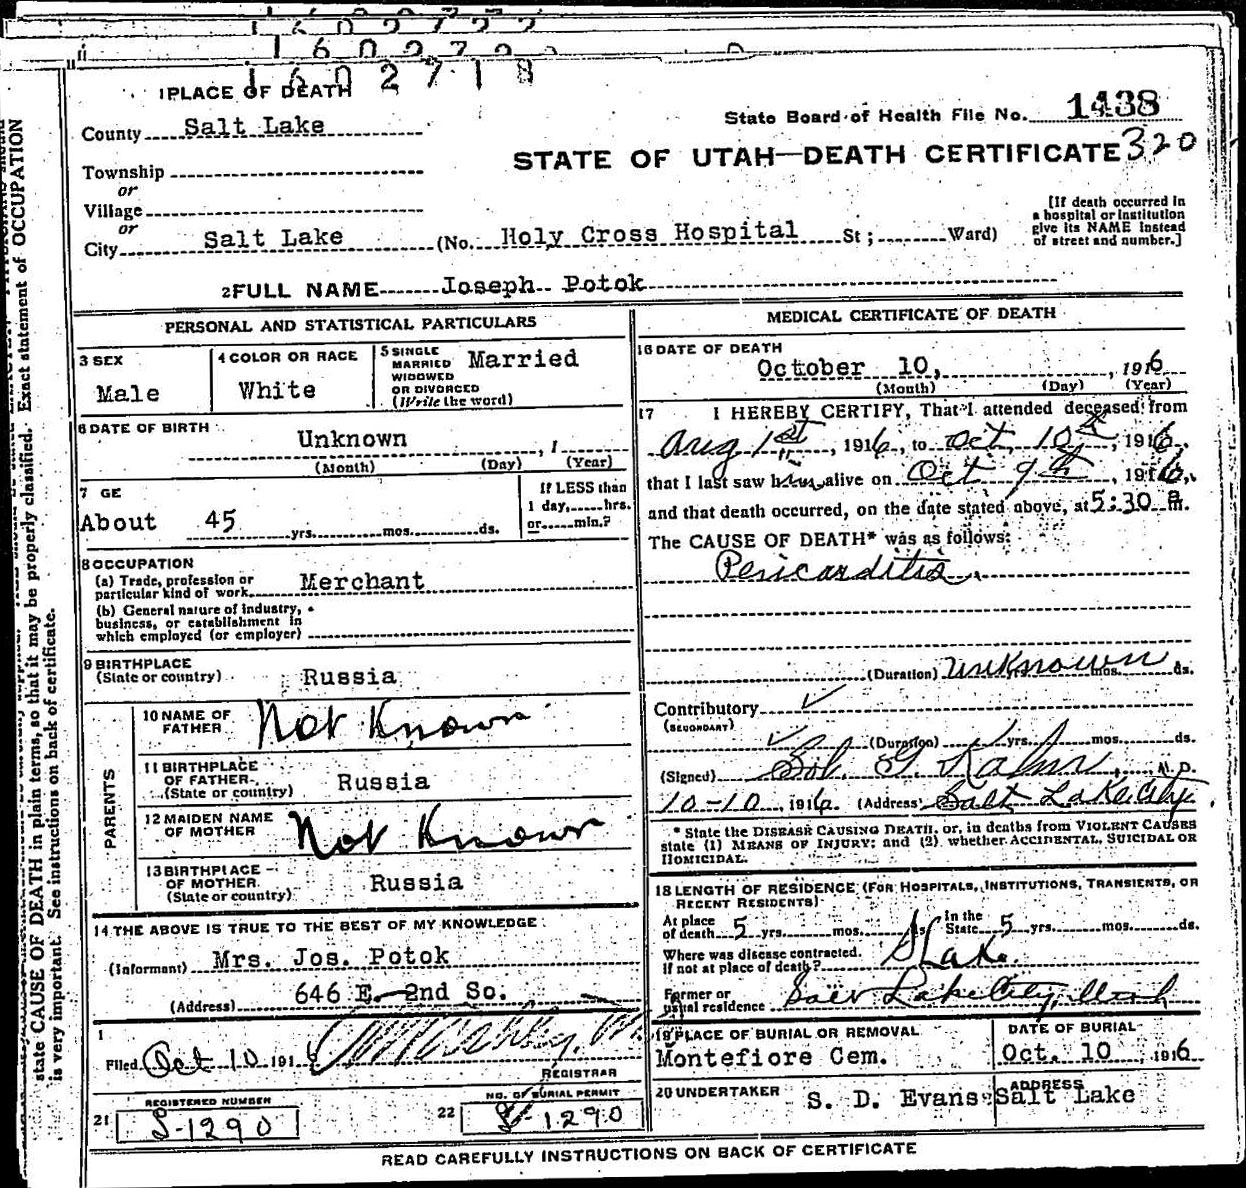 1602718
1 PLACE OF DEATH
County Salt Lake
State Board of Health File No. 1438
Township
or
Village
or
STATE OF UTAH—DEATH CERTIFICATE 320
City Salt Lake (No. Holy Cross Hospital St; Ward)
[If death occurred in
a hospital or institution
give its NAME instead
of street and number.]
2 FULL NAME Joseph Potok
PERSONAL AND STATISTICAL PARTICULARS
3 SEX
Male
4 COLOR OR RACE
White
5 SINGLE
MARRIED
WIDOWED
OR DIVORCED
(Write the word)
Married
6 DATE OF BIRTH
Unknown , 1
(Month) (Day) (Year)
7 GE
About 45 yrs. mos. ds.
If LESS than
1 day, hrs.
or min.?
8 OCCUPATION
(a) Trade, profession or
particular kind of work Merchant
(b) General nature of industry,
business, or establishment in
which employed (or employer)
9 BIRTHPLACE
(State or country) Russia
PARENTS
10 NAME OF
FATHER Not Known
11 BIRTHPLACE
OF FATHER
(State or country) Russia
12 MAIDEN NAME
OF MOTHER Not Known
13 BIRTHPLACE
OF MOTHER
(State or country) Russia
14 THE ABOVE IS TRUE TO THE BEST OF MY KNOWLEDGE
(Informant) Mrs. Jos. Potok
(Address) 646 E. 2nd So.
Filed Oct 10 191
REGISTRAR
REGISTERED NUMBER
21 S-1290
NO. OF BURIAL PERMIT
22 S-1290
MEDICAL CERTIFICATE OF DEATH
16 DATE OF DEATH
October 10, , 1916
(Month) (Day) (Year)
17 I HEREBY CERTIFY, That I attended deceased from
Aug 1st, 1916, to Oct 10th, 1916,
that I last saw him alive on Oct 9th, 1916,
and that death occurred, on the date stated above, at 5:30 a m.
The CAUSE OF DEATH* was as follows:
Pericarditis
(Duration) unknown yrs. mos. ds.
Contributory
(SECONDARY)
(Duration) yrs. mos. ds.
(Signed) Sol. G. Kahn, M. D.
10-10, 1916. (Address) Salt Lake City.
* State the DISEASE CAUSING DEATH, or, in deaths from VIOLENT CAUSES
state (1) MEANS OF INJURY; and (2) whether ACCIDENTAL, SUICIDAL OR
HOMICIDAL.
18 LENGTH OF RESIDENCE (FOR HOSPITALS, INSTITUTIONS, TRANSIENTS, OR
RECENT RESIDENTS)
At place
of death 5 yrs. mos. ds.
In the
State 5 yrs. mos. ds.
Where was disease contracted.
If not at place of death? S Lake.
Former or
usual residence Salt Lake City, Utah
19 PLACE OF BURIAL OR REMOVAL
Montefiore Cem.
DATE OF BURIAL
Oct. 10 , 1916
20 UNDERTAKER
S. D. Evans
ADDRESS
Salt Lake
READ CAREFULLY INSTRUCTIONS ON BACK OF CERTIFICATE
Exact statement of OCCUPATION
state CAUSE OF DEATH in plain terms, so that it may be properly classified.
is very important. See instructions on back of certificate.